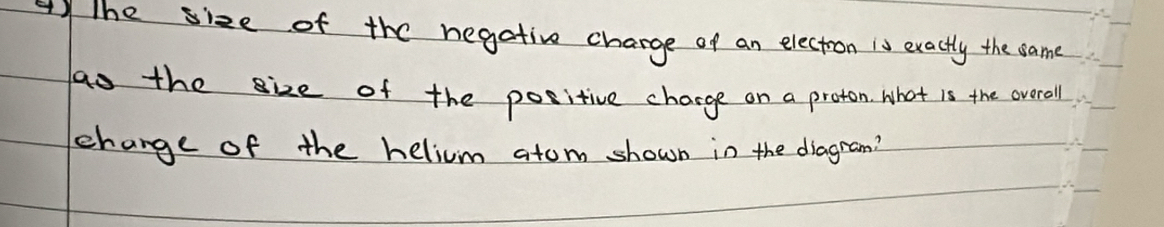 4) The size of the negative charge of an electron is exactly the same
as the size of the positive charge on a proton. What is the overall
charge of the helium atom shown in the diagram?